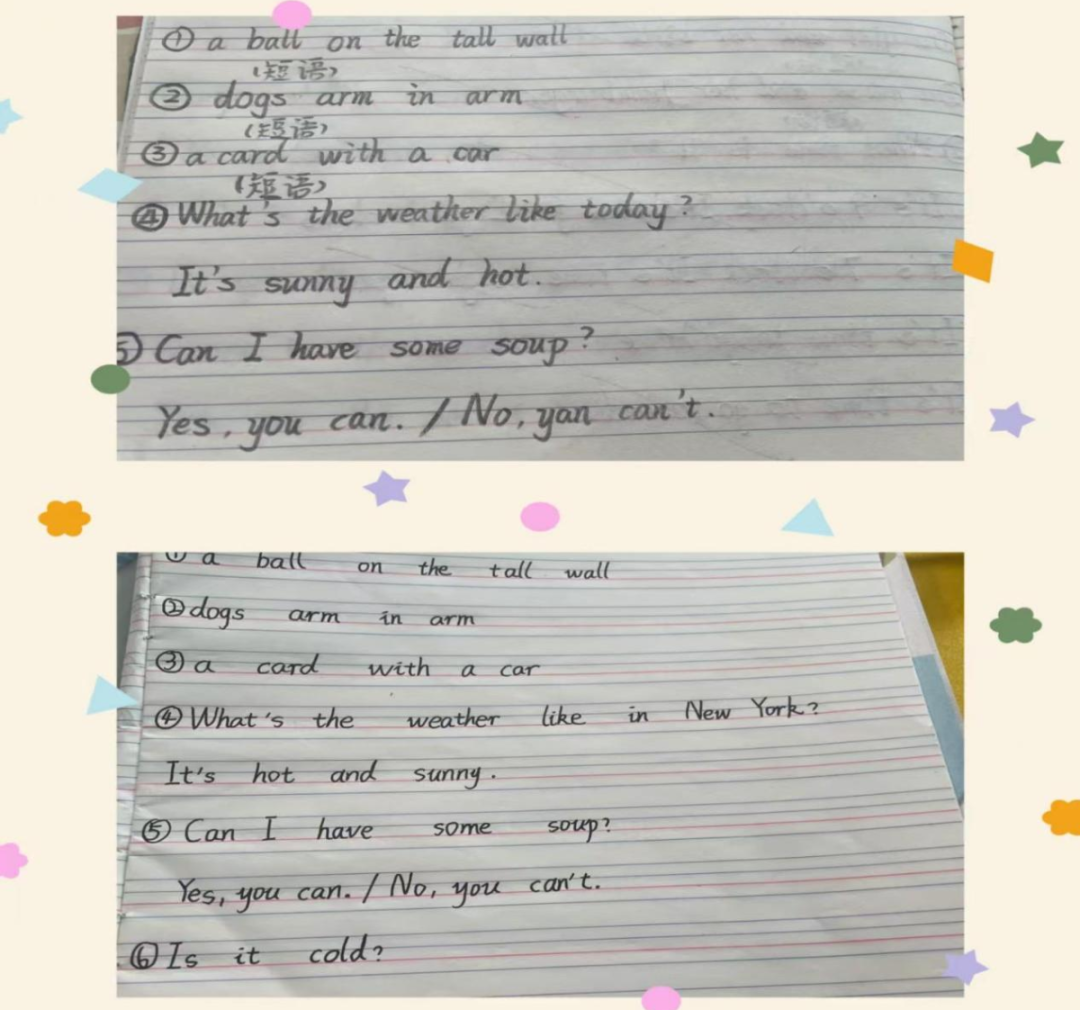 ① a ball on the tall wall
(短语)
② dogs arm in arm
(短语)
③ a card with a car
(短语)
④ What's the weather like today?
It's sunny and hot.
⑤ Can I have some soup?
Yes, you can. / No, yan can't.
① a ball on the tall wall
② dogs arm in arm
③ a card with a car
④ What's the weather like in New York?
It's hot and sunny.
⑤ Can I have some soup?
Yes, you can. / No, you can't.
⑥ Is it cold?